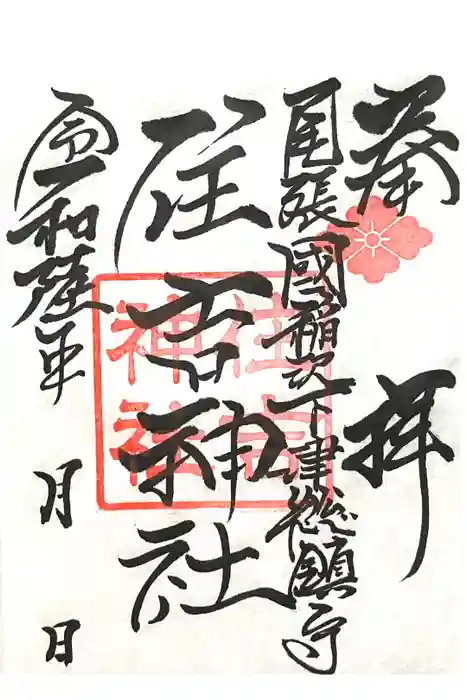 奉拝
尾張國稲沢下津総鎮守
住吉神社
令和陸年
月
日
住吉
神社